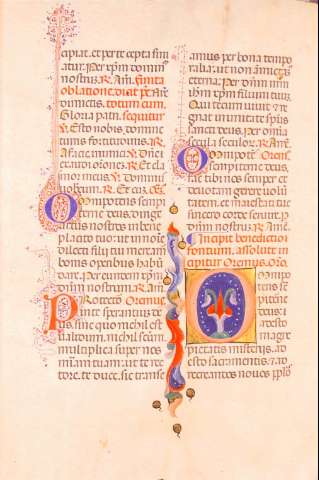 cipiat. et per te cepta fini
atur. Per xp̄m dominū
nostrum. R. Am̄. Finita
oblatione. dicat per Am̄
dimictis. totum cum.
Gloria patri. sequitur
V. Esto nobis domine
turris fortitudinis. R. A
facie inimici. V. Dn̄e
exaudi orōnem. R. Et cla
mor meus. V. Dominus
vobiscum. R. Et cum
Omnipotens sempi
terne deus. dirige
actus nostros in bene
placito tuo: ut in noīe
dilecti filii tui merea
mur bonis operibus habū
dare. Per eundem xp̄m
dominū nostrum. R. Am̄
Protector Oremus.
in te sperantium de
us. sine quo nichil est
ualidum. nichil sc̄m
multiplica super nos
miām tuam: ut te rec
tore. te duce. sic transe
amus per bona tempo
ralia. ut non amictamus
eterna. Per dominum
ihm xp̄m filium tuum
Qui tecum uiuit et re
gnat in unitate spiritus
sancti deus. Per omnia
secula seculorum. R. Am̄.
Omnipotens Oremus.
sempiterne deus.
fac tibi nos semper et
deuotam gerere uolū
tatem. et maiestati tue
sincero corde seruire. P
dnm nostrum. R. Am̄
Incipit benedictio
fontium. absolute in
cipitur Oremus. Oro.
Omnipo
tens sem
piterne
deus. a
desto
magne
pietatis misteriis. ad
esto sacramentis: et ad
recreandos nouos pplōs